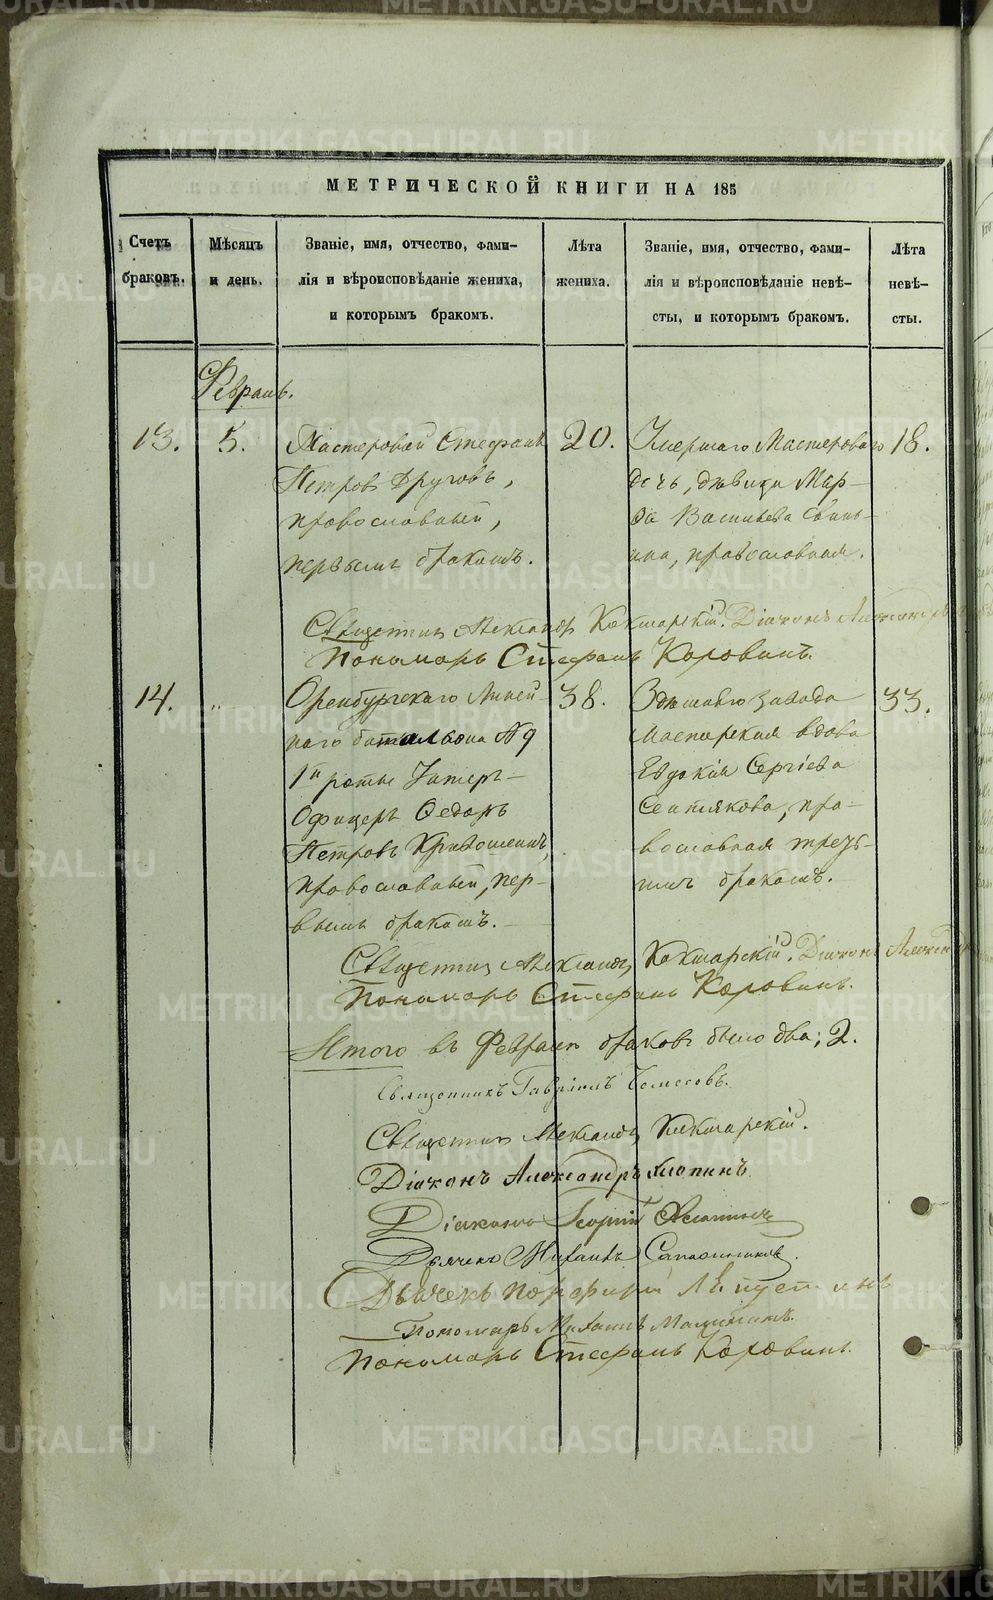 МЕТРИЧЕСКОЙ КНИГИ НА 185
Счетъ браковъ.
Мѣсяцъ и день.
Званіе, имя, отчество, фами-
лія и вѣроисповѣданіе жениха,
и которымъ бракомъ.
Лѣта жениха.
Званіе, имя, отчество, фами-
лія и вѣроисповѣданіе невѣ-
сты, и которымъ бракомъ.
Лѣта невѣ-
сты.
Февраль.
13. 5.
Мастеровой Стефанъ
Петровъ Друговъ,
православный,
первымъ бракомъ.
20.
Умершаго Мастероваго
дочь, дѣвица Мар-
ѳа Васильева Свинь-
ина, православная.
18.
Священникъ Александръ Кокшарскій. Діаконъ Александръ
Пономарь Стефанъ Коровинъ.
14. "
Оренбургскаго Линей-
наго баталіона №9
1й роты Унтеръ-
Офицеръ Ѳедоръ
Петровъ Кривошеинъ,
православный, пер-
вымъ бракомъ.
38.
Здѣшняго завода
мастерская вдова
Евдокія Сергіева
православная треть-
имъ бракомъ.
33.
Священникъ Александръ Кокшарскій. Діаконъ Александръ
Пономарь Стефанъ Коровинъ.
Итого въ Февралѣ браковъ было два; 2.
Священникъ Гавріилъ
Священникъ Александръ Кокшарскій.
Діаконъ Александръ Хлопинъ
Діаконъ Георгій
Дьячекъ Михаилъ Сапожниковъ.
Дьячекъ Порфирій
Пономарь Михаилъ
Пономарь Стефанъ Коровинъ.
METRIKI.GASO-URAL.RU